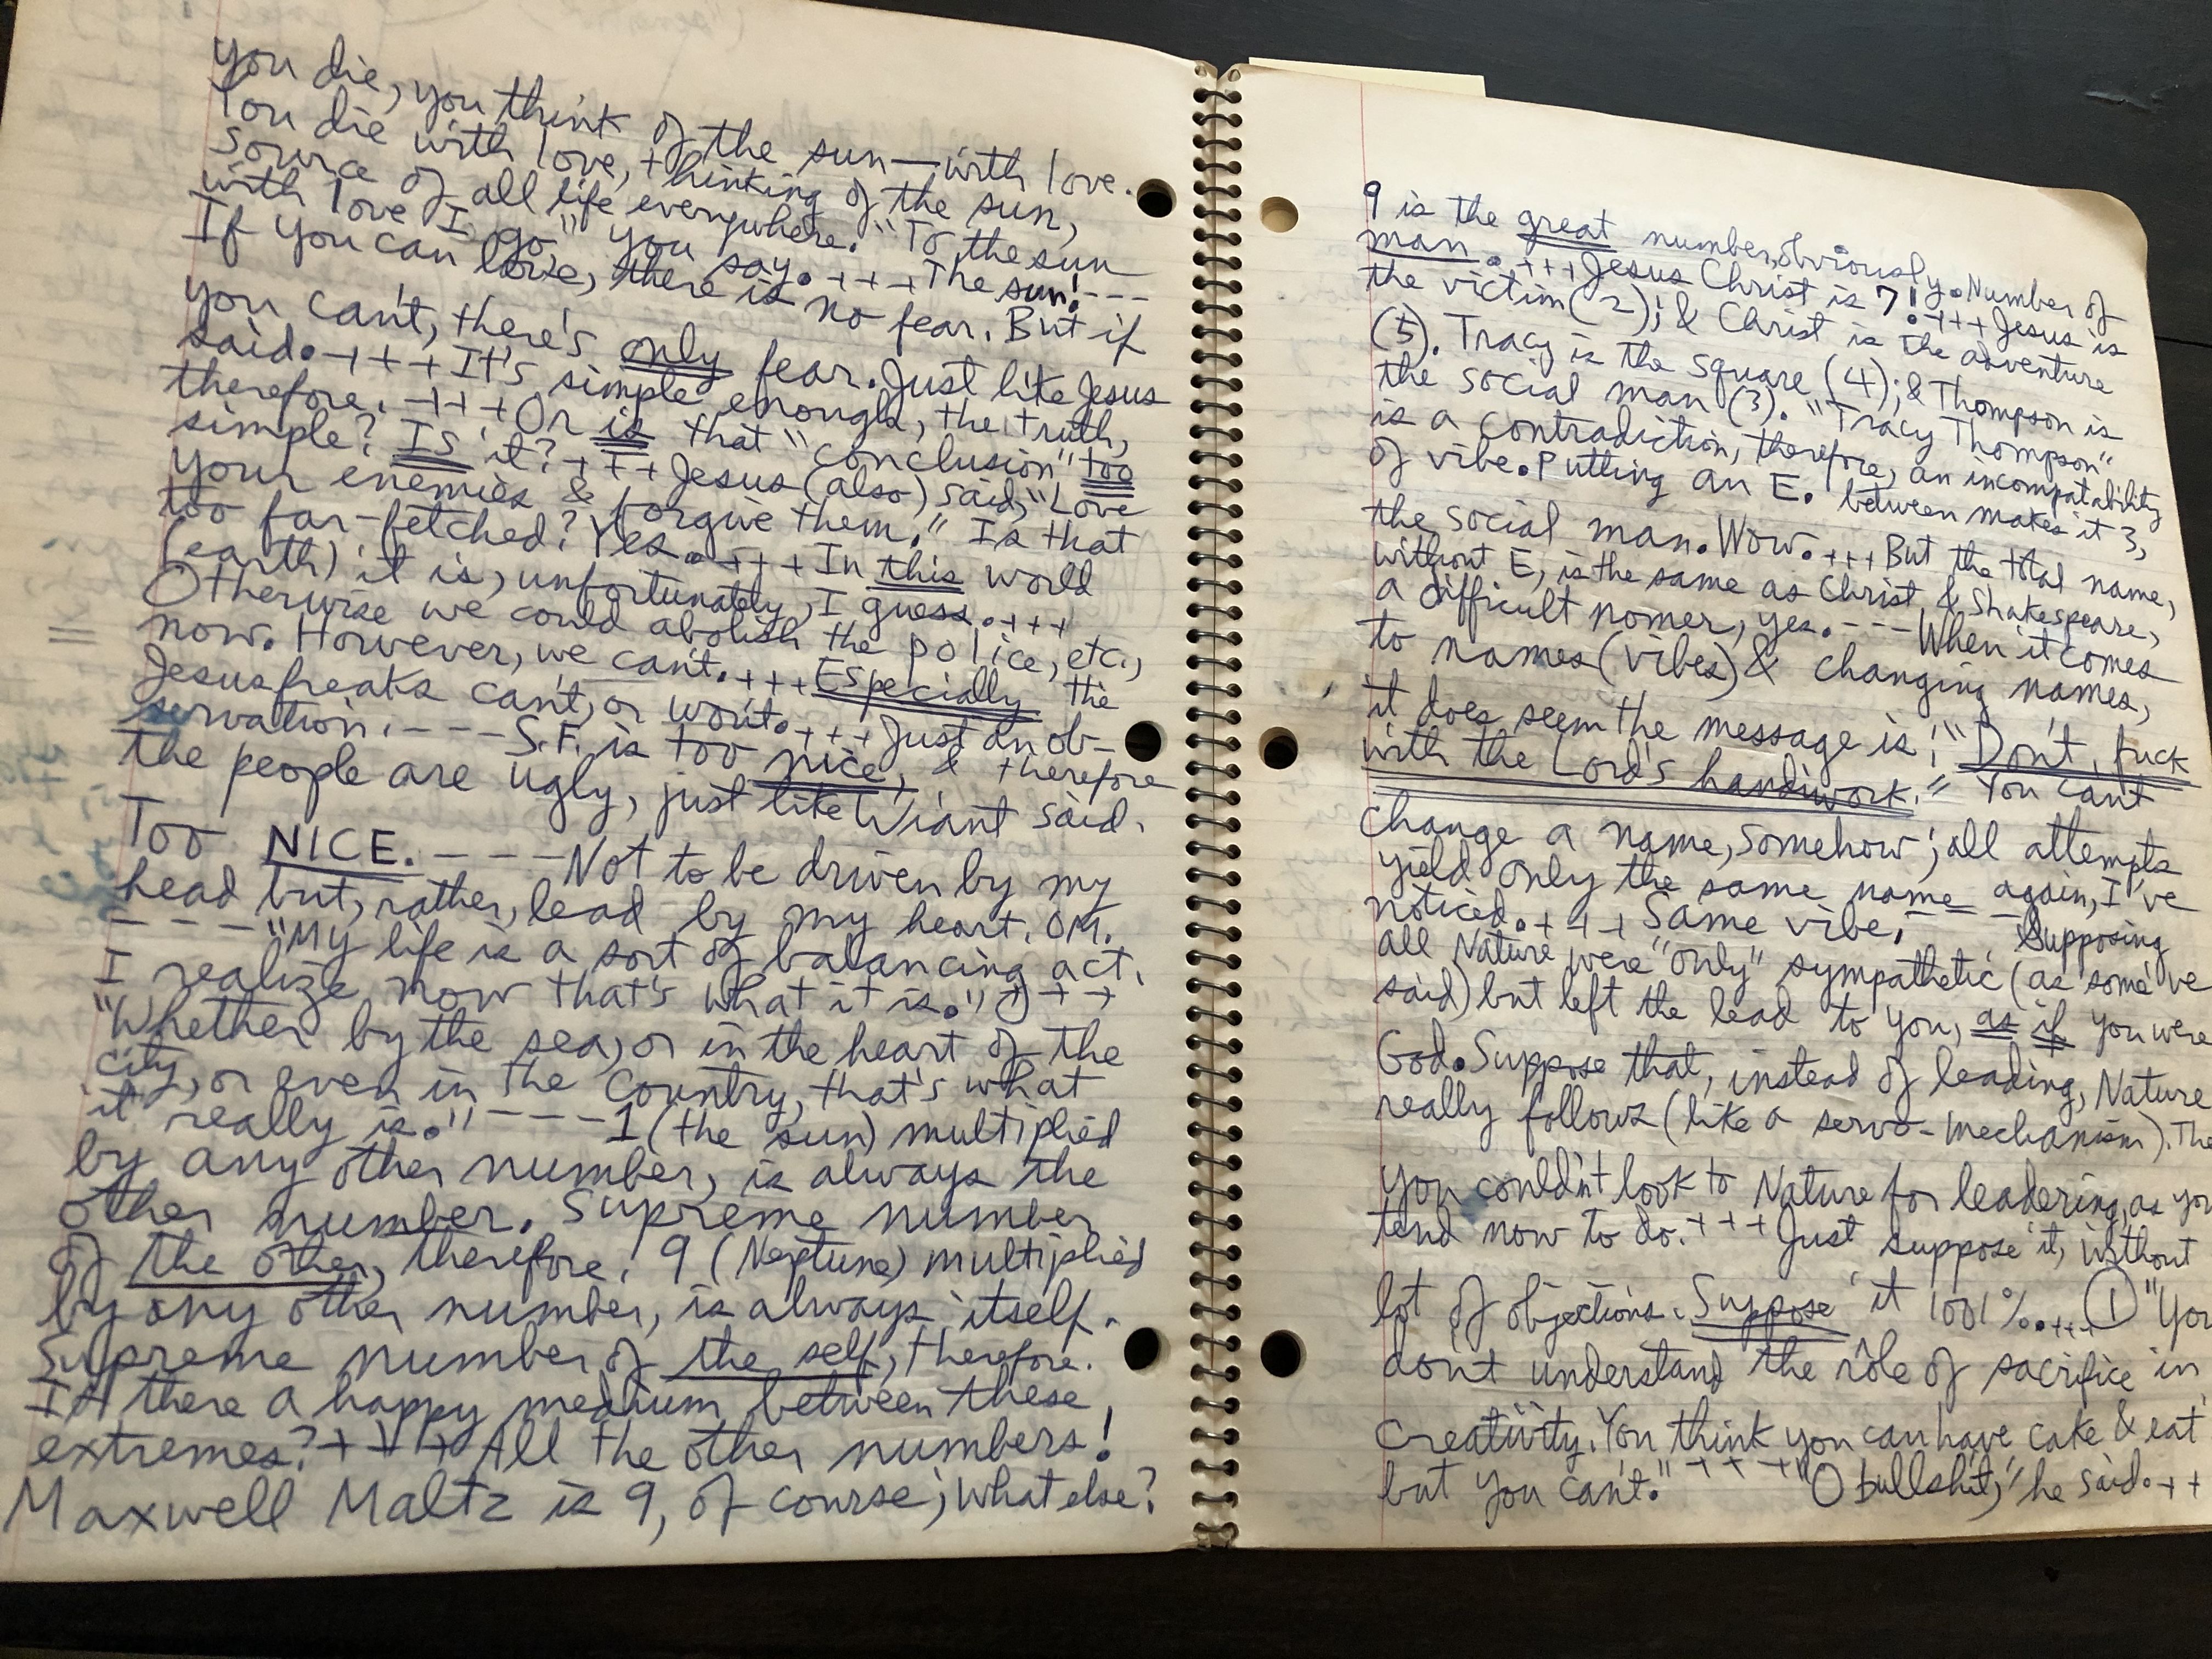 you die, you think of the sun—with love.
You die with love, thinking of the sun,
source of all life everywhere. "To the sun
with love I go," you say. +++The sun!---
If you can love, there is no fear. But if
you can't, there's only fear. Just like Jesus
said. +++It's simple enough, the truth,
therefore. +++Or is that "conclusion" too
simple? Is it? +++Jesus (also) said, "Love
your enemies & forgive them." Is that
too far-fetched? Yes. +++In this world
(earth) it is, unfortunately, I guess. +++
Otherwise we could abolish the police, etc.,
now. However, we can't. +++Especially the
Jesusfreaks can't, or won't. +++Just an ob-
servation. ----S.F. is too nice, & therefore
the people are ugly, just like Wiant said.
Too NICE. ----Not to be driven by my
head but, rather, lead by my heart. OM.
---"My life is a sort of balancing act.
I realize now that's what it is." +++
"Whether by the sea, or in the heart of the
city, or even in the country, that's what
it really is." ----1 (the sun) multiplied
by any other number, is always the
other number. Supreme number
of the other, therefore. 9 (Neptune) multiplied
by any other number, is always itself.
Supreme number of the self, therefore.
Is there a happy medium between these
extremes? +++ All the other numbers!
Maxwell Maltz is 9, of course; what else?
9 is the great number, obviously. Number of
man. +++Jesus Christ is 7! +++Jesus is
the victim (2); & Christ is the adventure
(5). Tracy is the square (4); & Thompson is
the social man (3). "Tracy Thompson"
is a contradiction, therefore, an incompatability
of vibe. Putting an E. between makes it 3,
the social man. Wow. +++But the total name,
without E, is the same as Christ & Shakespeare,
a difficult nomer, yes. ---When it comes
to names (vibes) & changing names,
it does seem the message is: "Don't fuck
with the Lord's handiwork." You can't
change a name, somehow; all attempts
yield only the same name again, I've
noticed. +++ Same vibe. --Supposing
all Nature were "only" sympathetic (as some've
said) but left the lead to you, as if you were
God. Suppose that, instead of leading, Nature
really follows (like a servo-mechanism). The
you couldn't look to Nature for leadering, as you
tend now to do. +++Just suppose it, without
lot of objections. Suppose it 1001%. +++ ① "You
don't understand the rôle of sacrifice in
creativity. You think you can have cake & eat
but you can't." +++"O bullshit," he said. ++